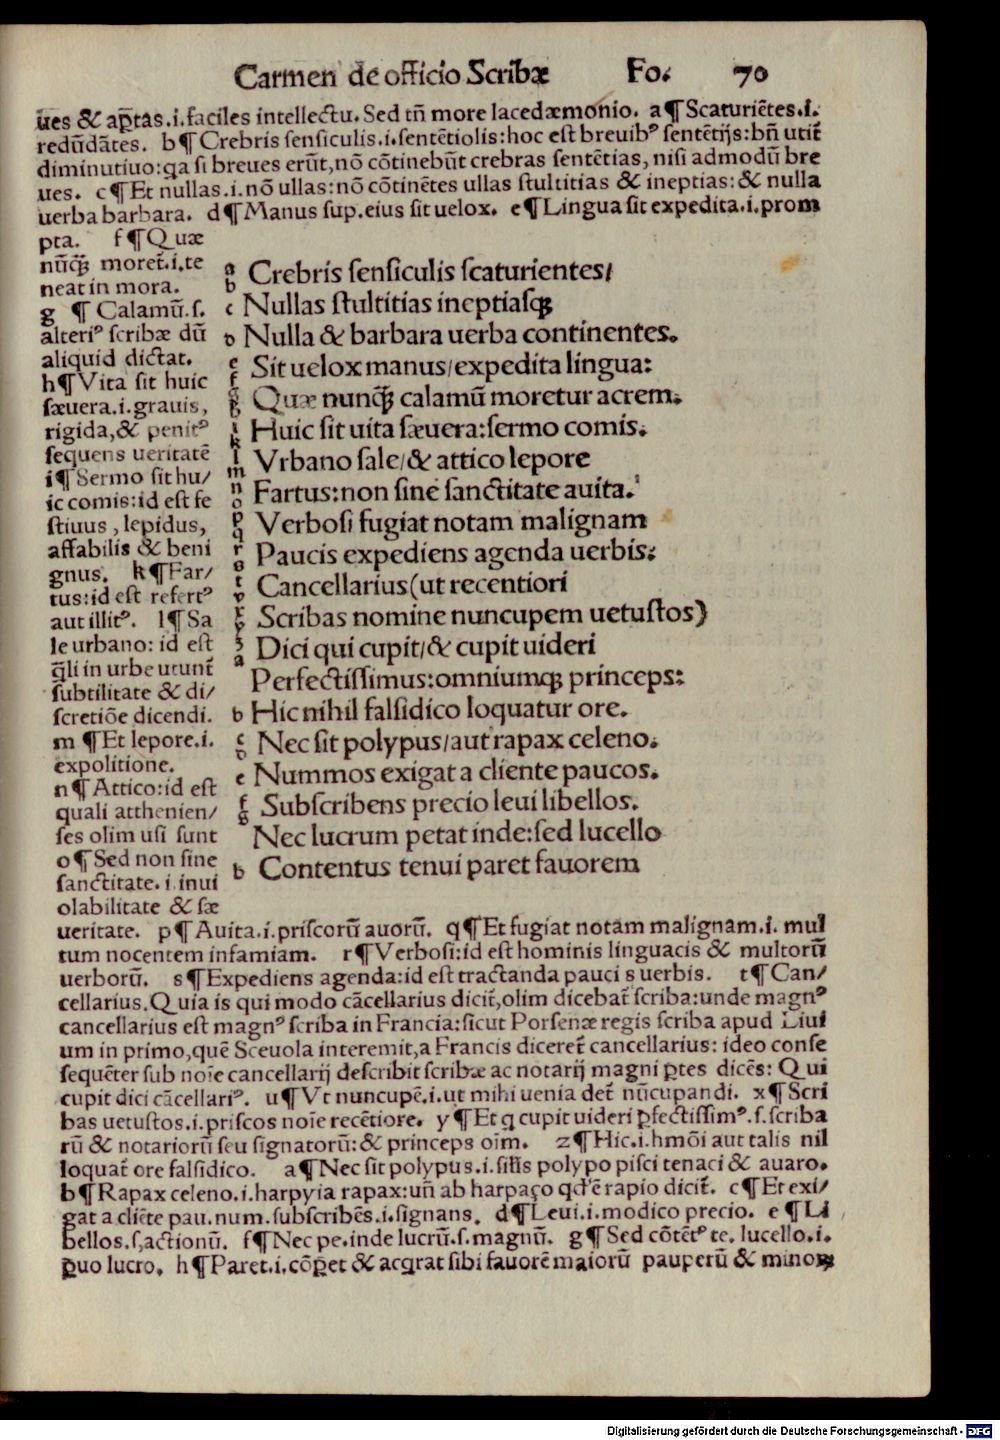 Carmen de officio Scribæ Fo. 70
ues & aptas.i.faciles intellectu. Sed tñ more lacedæmonio. a¶Scaturiẽtes.i.
redũdãtes. b¶Crebris sensiculis.i.sentẽtiolis:hoc est breuibꝰ sentẽtijs:bñ utit̃
diminutiuo:qa si breues erũt,nõ cõtinebũt crebras sentẽtias, nisi admodũ bre
ues. c¶Et nullas.i.nõ ullas:nõ cõtinẽtes ullas stultitias & ineptias:& nulla
uerba barbara. d¶Manus sup.eius sit uelox. e¶Lingua sit expedita.i.prom
pta. f¶Quæ
nũꝙ̃ moret̃.i.te
neat in mora.
g ¶Calamũ.s.
alteriꝰ scribæ dũ
aliquid dictat.
h¶Vita sit huic
sæuera.i.grauis,
rigida,& penitꝰ
sequens ueritatẽ
i¶Sermo sit hu/
ic comis:id est fe
stiuus, lepidus,
affabilis & beni
gnus. k¶Far/
tus:id est refertꝰ
aut illitꝰ. l¶Sa
le urbano: id est
q̃li in urbe utunt̃
subtilitate & di/
scretiõe dicendi.
m ¶Et lepore.i.
expolitione.
n¶Attico:id est
quali atthenien/
ses olim usi sunt
o¶Sed non sine
sanctitate.i.inui
olabilitate & sæ
a Crebris sensiculis scaturientes/
b
c Nullas stultitias ineptiasꝙ
d Nulla & barbara uerba continentes.
e Sit uelox manus/expedita lingua:
f
g Quæ nunꝙ̃ calamũ moretur acrem.
h
i Huic sit uita sæuera:sermo comis.
k
l Vrbano sale/& attico lepore
m
n Fartus:non sine sanctitate auita.
o
p Verbosi fugiat notam malignam
q
r Paucis expediens agenda uerbis:
t Cancellarius(ut recentiori
Scribas nomine nuncupem uetustos)
Dici qui cupit/& cupit uideri
a
Perfectissimus:omniumꝙ princeps:
b Hic nihil falsidico loquatur ore.
c Nec sit polypus/aut rapax celeno.
e Nummos exigat a cliente paucos.
f Subscribens precio leui libellos.
g
Nec lucrum petat inde:sed lucello
b Contentus tenui paret fauorem
ueritate. p¶Auita.i.priscorũ auorũ. q¶Et fugiat notam malignam.i. mul
tum nocentem infamiam. r¶Verbosi:id est hominis linguacis & multorũ
uerborũ. s¶Expediens agenda:id est tractanda pauci s uerbis. t¶Can/
cellarius.Quia is qui modo cãcellarius dicit̃,olim dicebat̃ scriba:unde magnꝰ
cancellarius est magnꝰ scriba in Francia:sicut Porsenæ regis scriba apud Liui
um in primo,quẽ Sceuola interemit,a Francis diceret̃ cancellarius: ideo conse
sequẽter sub noĩe cancellarij describit scribæ ac notarij magni ꝑtes dicẽs: Qui
cupit dici cãcellariꝰ. u¶Vt nuncupẽ.i.ut mihi uenia det̃ nũcupandi. x¶Scri
bas uetustos.i.priscos noĩe recẽtiore. y¶Et q cupit uideri ꝑfectissimꝰ.s.scriba
rũ & notariorũ seu signatorũ:& princeps oĩm. z¶Hic.i.hmõi aut talis nil
loquat̃ ore falsidico. a¶Nec sit polypus.i.sil̃is polypo pisci tenaci & auaro.
b¶Rapax celeno.i.harpyia rapax:uñ ab harpaço qđ ẽ rapio dicit̃. c¶Et exi/
gat a cliẽte pau.num.subscribẽs.i.signans. d¶Leui.i.modico precio. e¶Li
bellos.s,actionũ. f¶Nec pe.inde lucrũ.s.magnũ. g¶Sed cõtẽtꝰ te. lucello.i.
ꝑuo lucro. h¶Paret.i.cõꝑet & acqrat sibi fauorẽ maiorũ pauperũ & minoꝝ
Digitalisierung gefördert durch die Deutsche Forschungsgemeinschaft - DFG